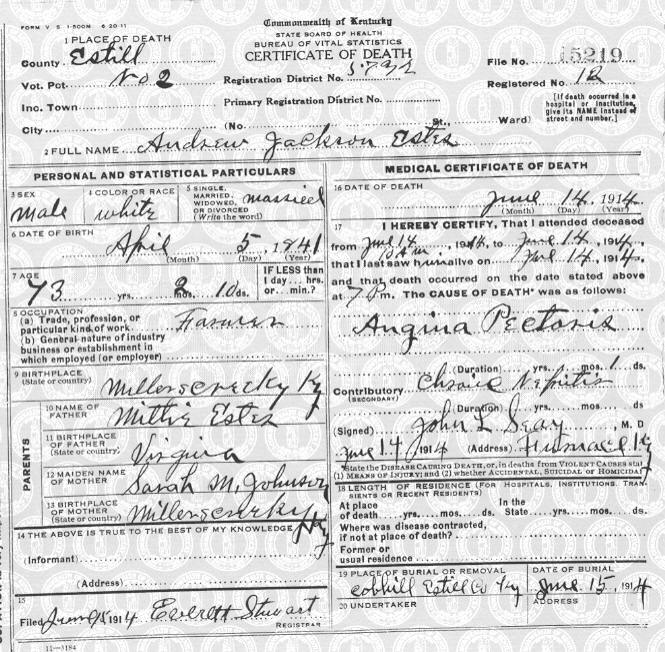 FORM V. S. 1-500M 6-20-11
Commonwealth of Kentucky
STATE BOARD OF HEALTH
BUREAU OF VITAL STATISTICS
CERTIFICATE OF DEATH
1 PLACE OF DEATH
County Estill
Vot. Pct. No 2
Inc. Town
City (No. St., Ward)
Registration District No.
Primary Registration District No.
File No. 15219
Registered No. 12
[If death occurred in a hospital or institution, give its NAME instead of street and number.]
2 FULL NAME Andrew Jackson Estes
PERSONAL AND STATISTICAL PARTICULARS
3 SEX male
4 COLOR OR RACE white
5 SINGLE, MARRIED, WIDOWED, OR DIVORCED (Write the word) married
6 DATE OF BIRTH April 5, 1841
(Month) (Day) (Year)
7 AGE 73 yrs. 2 mos. 10 ds.
IF LESS than 1 day... hrs. or... min.?
8 OCCUPATION
(a) Trade, profession, or particular kind of work Farmer
(b) General nature of industry business or establishment in which employed (or employer)
9 BIRTHPLACE (State or country) Millerscreek Ky
PARENTS
10 NAME OF FATHER Estes
11 BIRTHPLACE OF FATHER (State or country) Virginia
12 MAIDEN NAME OF MOTHER Sarah M. Johnson
13 BIRTHPLACE OF MOTHER (State or country) Millerscreek Ky
14 THE ABOVE IS TRUE TO THE BEST OF MY KNOWLEDGE
(Informant)
(Address)
15
Filed June 15 1914 Everett Stuart
REGISTRAR
11—3184
MEDICAL CERTIFICATE OF DEATH
16 DATE OF DEATH
June 14, 1914
(Month) (Day) (Year)
17 I HEREBY CERTIFY, That I attended deceased
from June 14, 1914, to June 14, 1914,
that I last saw him alive on June 14, 1914,
and that death occurred on the date stated above
at m. The CAUSE OF DEATH* was as follows:
Angina Pectoris
(Duration) yrs. mos. 1 ds.
Contributory (SECONDARY)
(Duration) yrs. mos. ds
(Signed) John L Seay, M. D
June 14, 1914 (Address)
*State the DISEASE CAUSING DEATH, or, in deaths from VIOLENT CAUSES stat
(1) MEANS OF INJURY; and (2) whether ACCIDENTAL, SUICIDAL or HOMICIDAL.
18 LENGTH OF RESIDENCE (FOR HOSPITALS, INSTITUTIONS, TRANSIENTS OR RECENT RESIDENTS)
At place of death yrs. mos. ds. In the State yrs. mos. ds.
Where was disease contracted, if not at place of death?
Former or usual residence
19 PLACE OF BURIAL OR REMOVAL
cobhill Estill Co Ky
DATE OF BURIAL
June 15, 1914
20 UNDERTAKER
ADDRESS